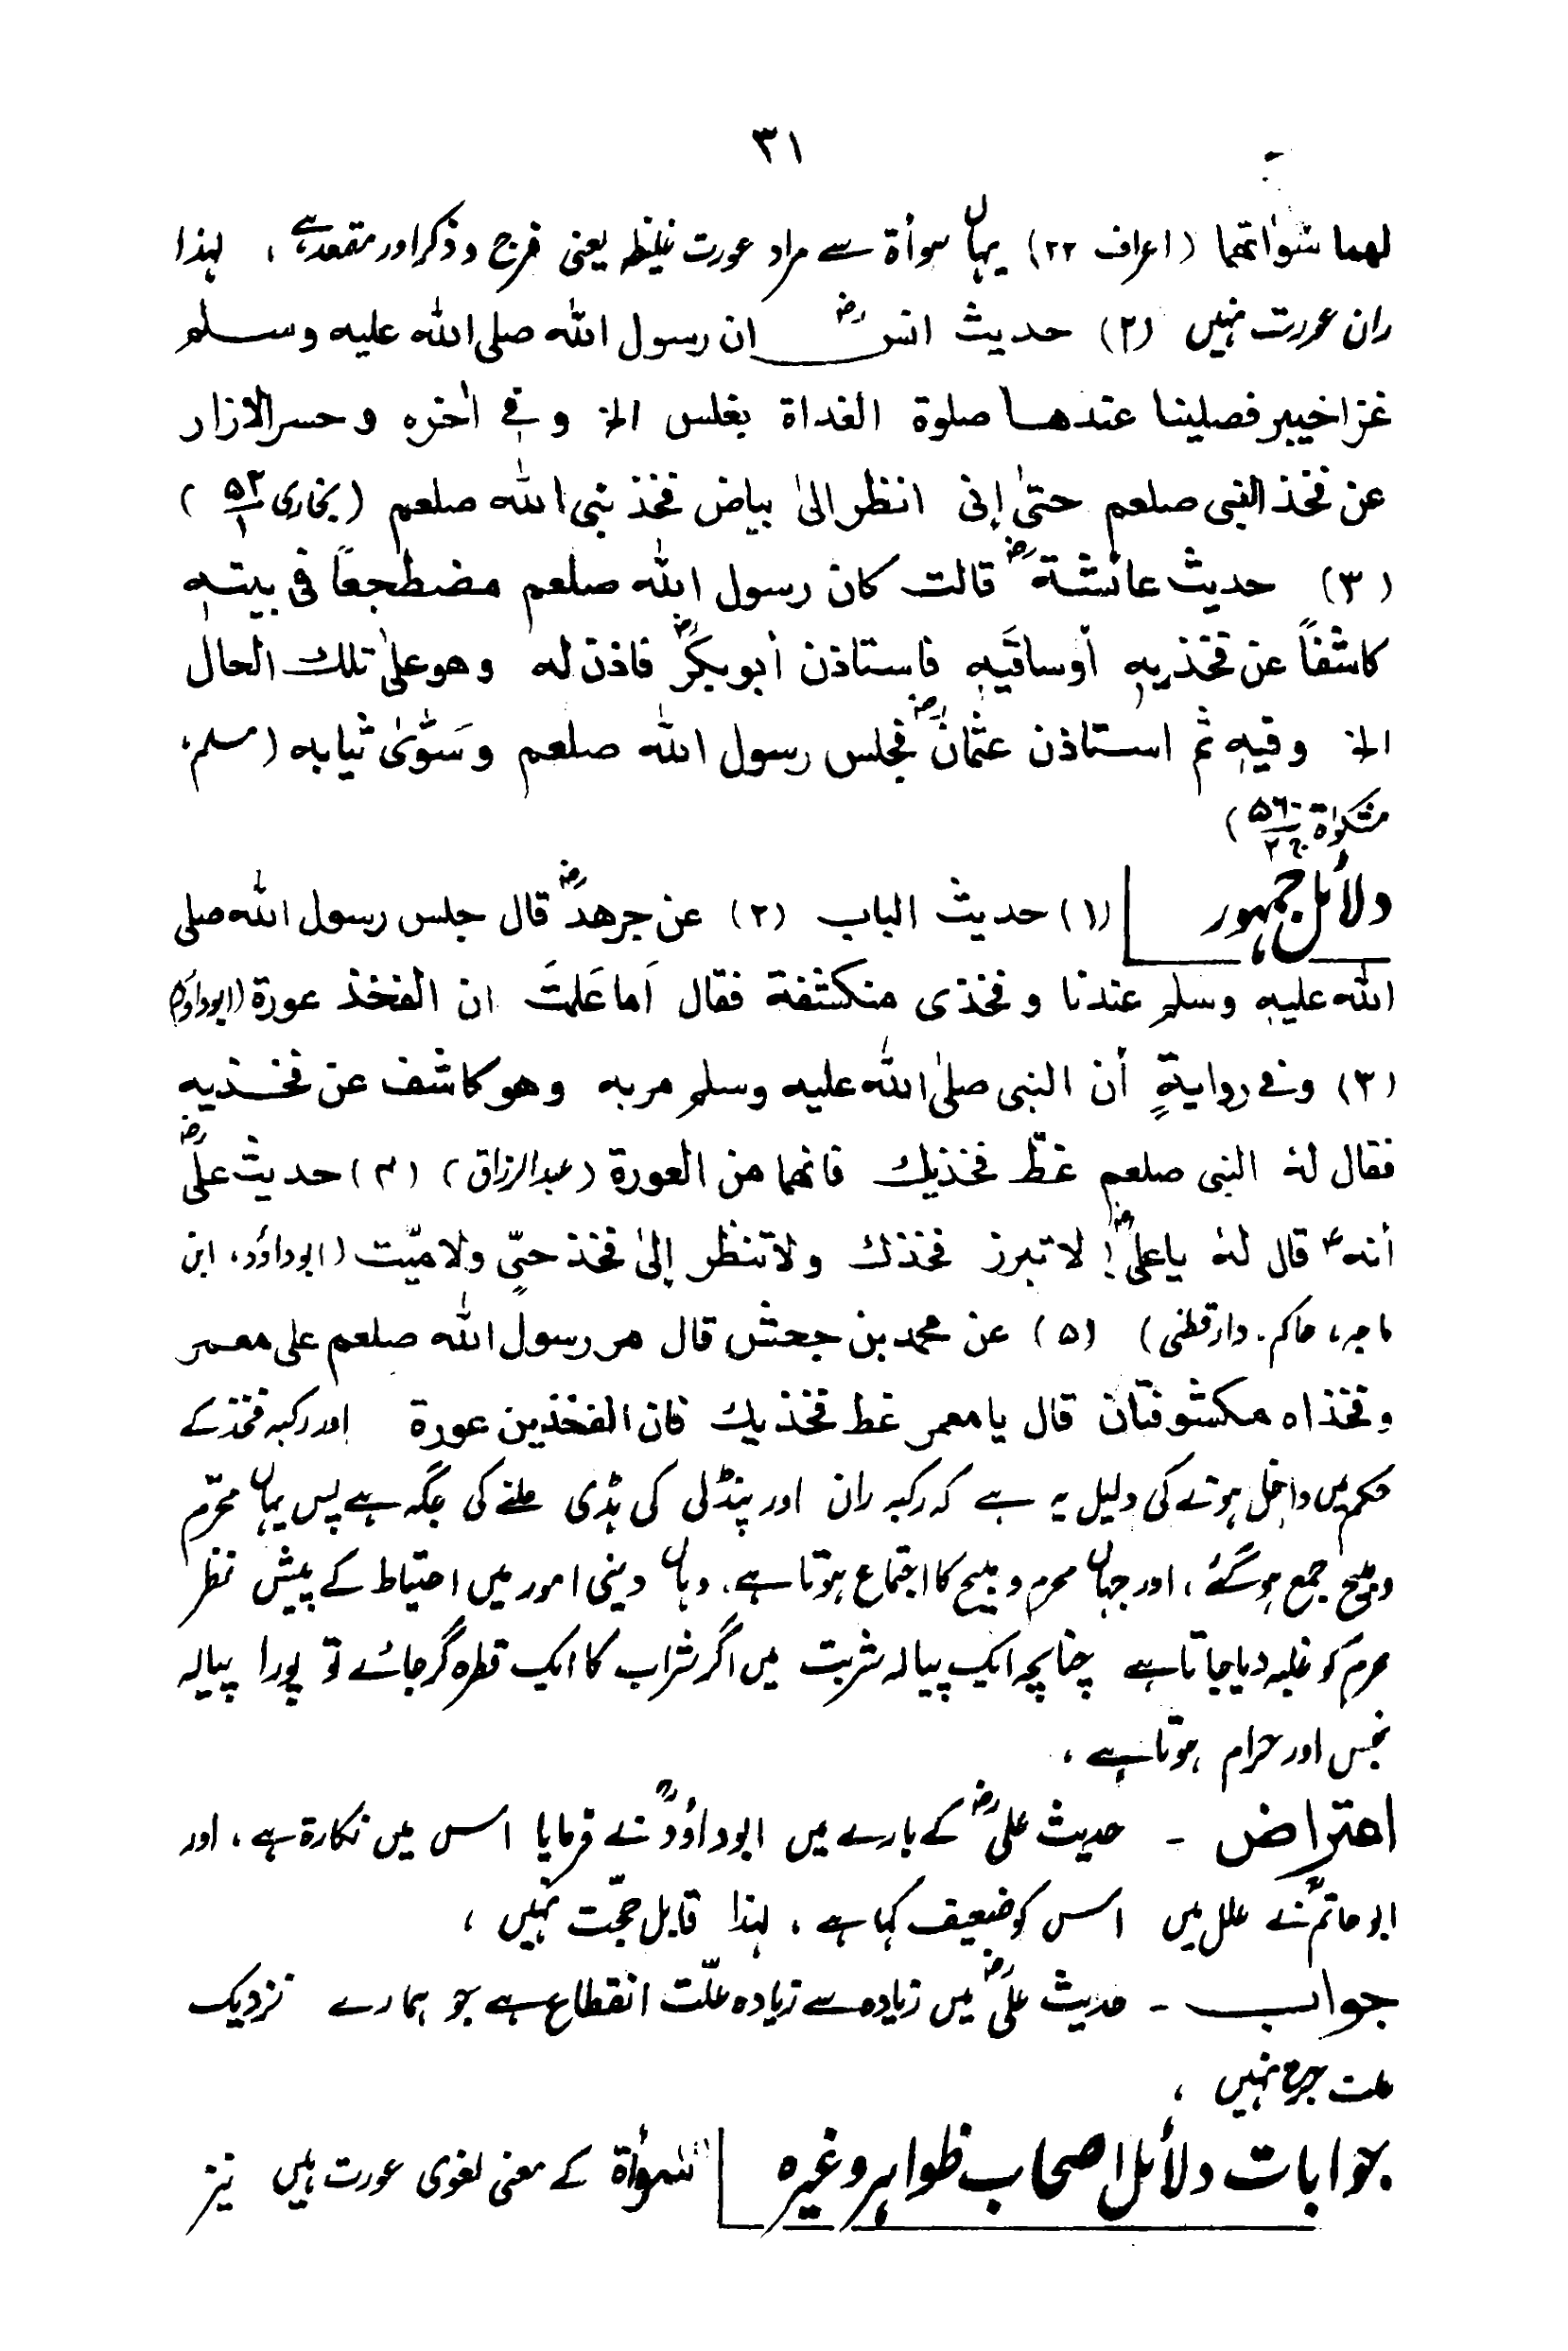 ۳۱
لهما سَوْاٰتهما (اعراف ۲۲) یہاں سوأۃ سے مراد عورت غلیظہ یعنی فرج و ذکر اور مقعد ہے ، لہذا
ران عورت نہیں (۲) حدیث انسؓ ان رسول الله صلی الله علیه وسلم
غزا خیبر فصلینا عندها صلوة الغداة بغلس الخ وفی اٰخره وحسر الازار
عن فخذ النبی صلعم حتیٰ إنی انظر الیٰ بیاض فخذ نبی الله صلعم (بخاری ۵۳/۱)
(۳) حدیث عائشةؓ قالت کان رسول الله صلعم مضطجعاً فی بیته
کاشفاً عن فخذیه أوساقَیه فاستاذن أبوبکرؓ فاذن له وهو علیٰ تلك الحال
الخ وفیه ثم استاذن عثمانؓ فجلس رسول الله صلعم وسَوّیٰ ثیابه (مسلم،
مشکوٰۃ ۵۶۰/ج۲)
دلائل جمہور (۱) حدیث الباب (۲) عن جرهدؓ قال جلس رسول الله صلی
الله علیه وسلم عندنا وفخذی منکشفة فقال اَما عَلمتَ ان الفخذ عورة (ابوداؤد)
(۳) وفی روایةٍ أن النبی صلیٰ الله علیه وسلم مر به وهو کاشف عن فخذیه
فقال لهٗ النبی صلعم غطّ فخذیك فانهما من العورة (عبدالرزاق) (۴) حدیث علیؓ
أنه ؑ قال لهٗ یاعلیؓ! لا تبرز فخذك ولا تنظر إلیٰ فخذ حیٍّ ولا میّت (ابوداؤد، ابن
ماجہ، حاکم۔ دارقطنی) (۵) عن محمد بن جحش قال مر رسول الله صلعم علی معمر
وفخذاه مکشوفتان قال یا معمر غط فخذیك فان الفخذین عورة اور رکبہ فخذ کے
حکم میں داخل ہونے کی دلیل یہ ہے کہ رکبہ ران اور پنڈلی کی ہڈی ملنے کی جگہ ہے پس یہاں محرّم
ومبیح جمع ہوگئے، اور جہاں محرم و مبیح کا اجتماع ہوتا ہے، وہاں دینی امور میں احتیاط کے پیش نظر
محرم کو غلبہ دیا جاتا ہے چنانچہ ایک پیالہ شربت میں اگر شراب کا ایک قطرہ گر جائے تو پورا پیالہ
نجس اور حرام ہوتا ہے ،
اعتراض ۔ حدیث علیؓ کے بارے میں ابوداؤدؒ نے فرمایا اس میں نکارۃ ہے، اور
ابوحاتمؒ نے علل میں اس کو ضعیف کہا ہے، لہذا قابل حجّت نہیں ،
جواب ۔ حدیث علیؓ میں زیادہ سے زیادہ علّت انقطاع ہے جو ہمارے نزدیک
علت جرح نہیں ،
جوابات دلائل اصحاب ظواہر وغیرہ (۱) سَوأۃ کے معنی لغوی عورت ہیں نیز